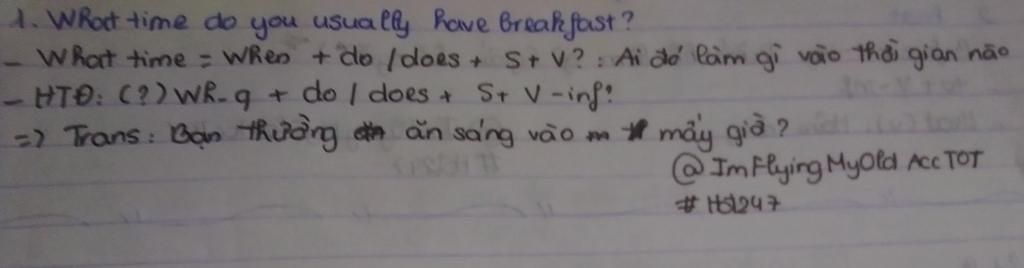 1. What time do you usually have breakfast?
- What time = When + do / does + S + V? : Ai đó làm gì vào thời gian nào
- HTĐ: (?) Wh-q + do / does + S + V-inf?
=> Trans: Bạn thường ăn sáng vào mấy giờ?
@ImFlyingMyOldAccTOT
#HSl247